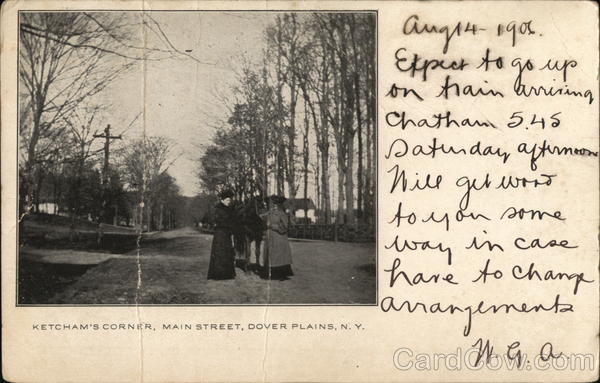 Aug 14 - 1906.
Expect to go up
on train arriving
Chatham 5.45
Saturday afternoon
Will get word
to you some
way in case
have to change
arrangements
W. G. A.
KETCHAM'S CORNER, MAIN STREET, DOVER PLAINS, N. Y.
CardCow.com